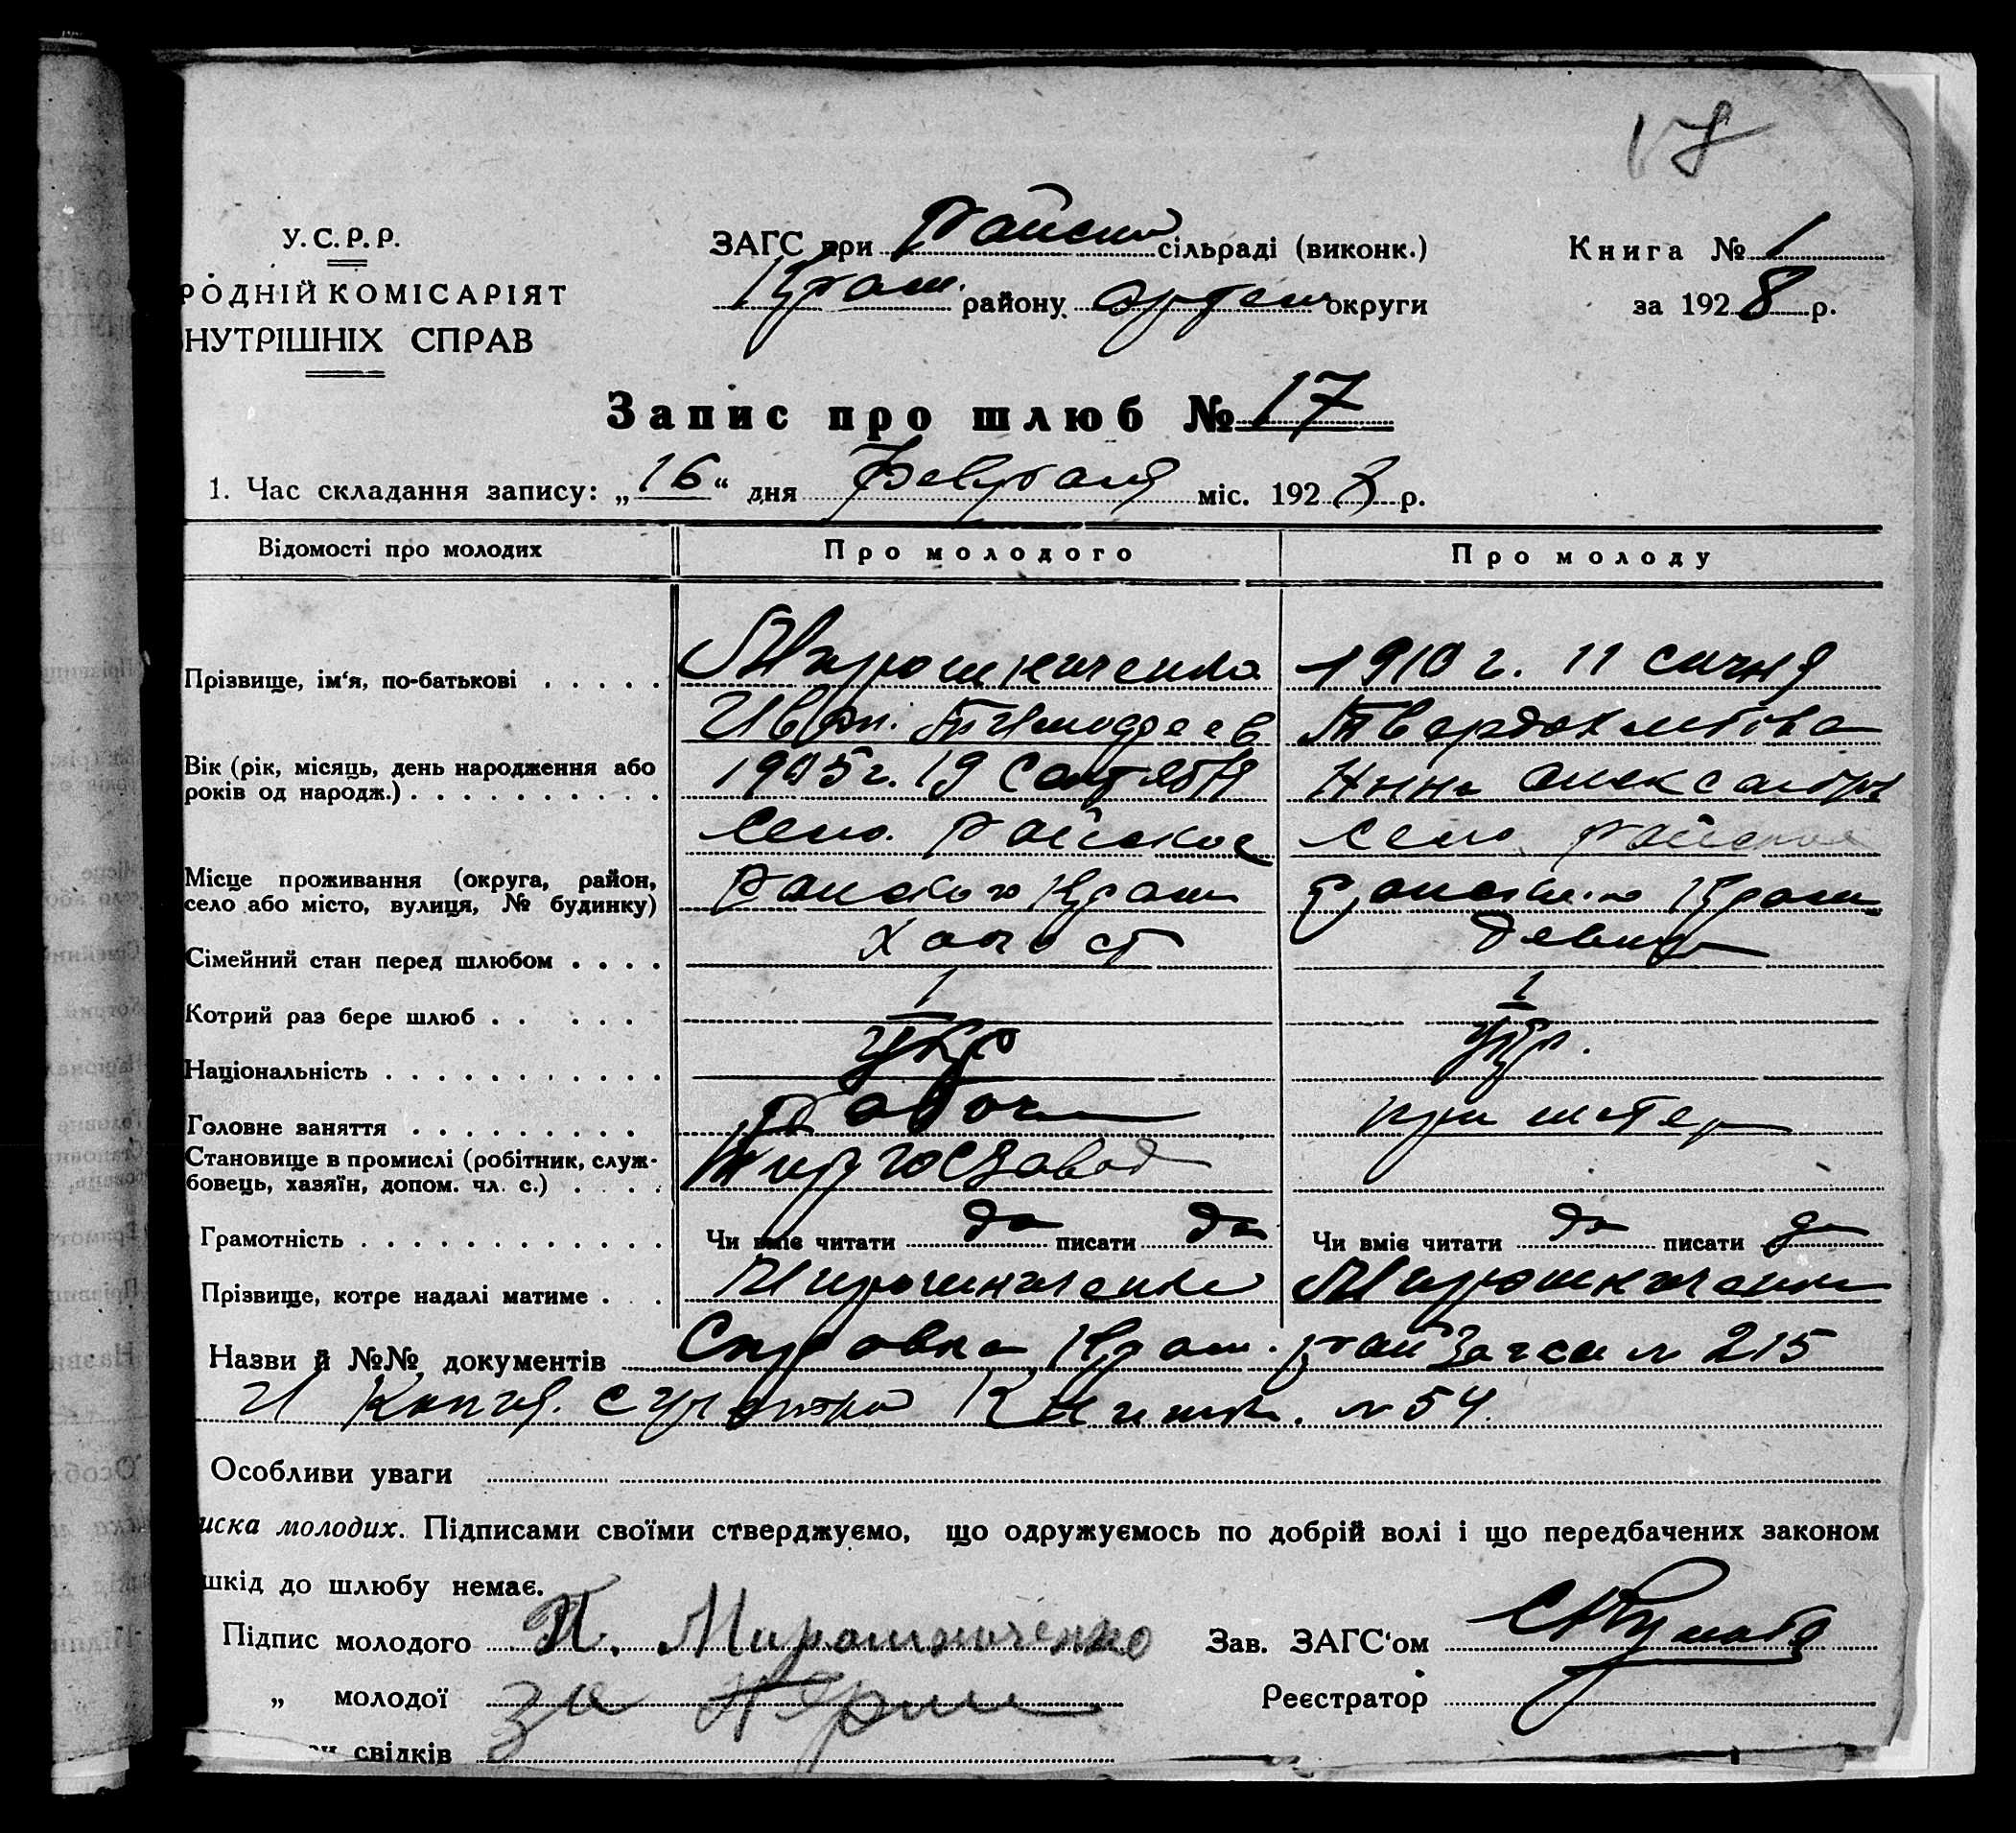 17
У.С.Р.Р.
ЗАГС при Райским сільраді (виконк.)
Книга № 1
РОДНІЙ КОМІСАРІЯТ
Крам. району Артем округи
за 1928 р.
НУТРІШНІХ СПРАВ
Запис про шлюб № 17
1. Час складання запису: „16“ дня Февраля міс. 1928 р.
Відомості про молодих
Про молодого
Про молоду
Прізвище, ім‘я, по-батькові . . . . .
Мирошниченко
1910 г. 11 січня
Иван. Тимофеев
Твердохлебова
Вік (рік, місяць, день народження або років од народж.) . . . . . . . . . .
1905 г. 19 Сентября
Нина Александр
Село. Райское
Село Райское
Місце проживання (округа, район, село або місто, вулиця, № будинку)
Райского Крам
Райского Крам
Сімейний стан перед шлюбом . . . .
Холост
Девица
Котрий раз бере шлюб . . . . . .
1
1
Національність . . . . . . . . . . . .
Укр
Укр.
Головне заняття . . . . . . . . .
Рабоч
при
Становище в промислі (робітник, службовець, хазяїн, допом. чл. с.) . . . .
завод
Грамотність . . . . . . . . . . . .
Чи вміє читати да писати да
Чи вміє читати да писати да
Прізвище, котре надалі матиме . . .
Мирошниченко
Мирошниченко
Назви й №№ документів Справка Крам. рай Загса № 215
И Копия. с № 54.
Особливи уваги
иска молодих. Підписами своїми стверджуємо, що одружуємось по добрій волі і що передбачених законом
шкід до шлюбу немає.
Підпис молодого Мирошниченко
Зав. ЗАГС‘ом
„ молодої за
Реєстратор
свідків